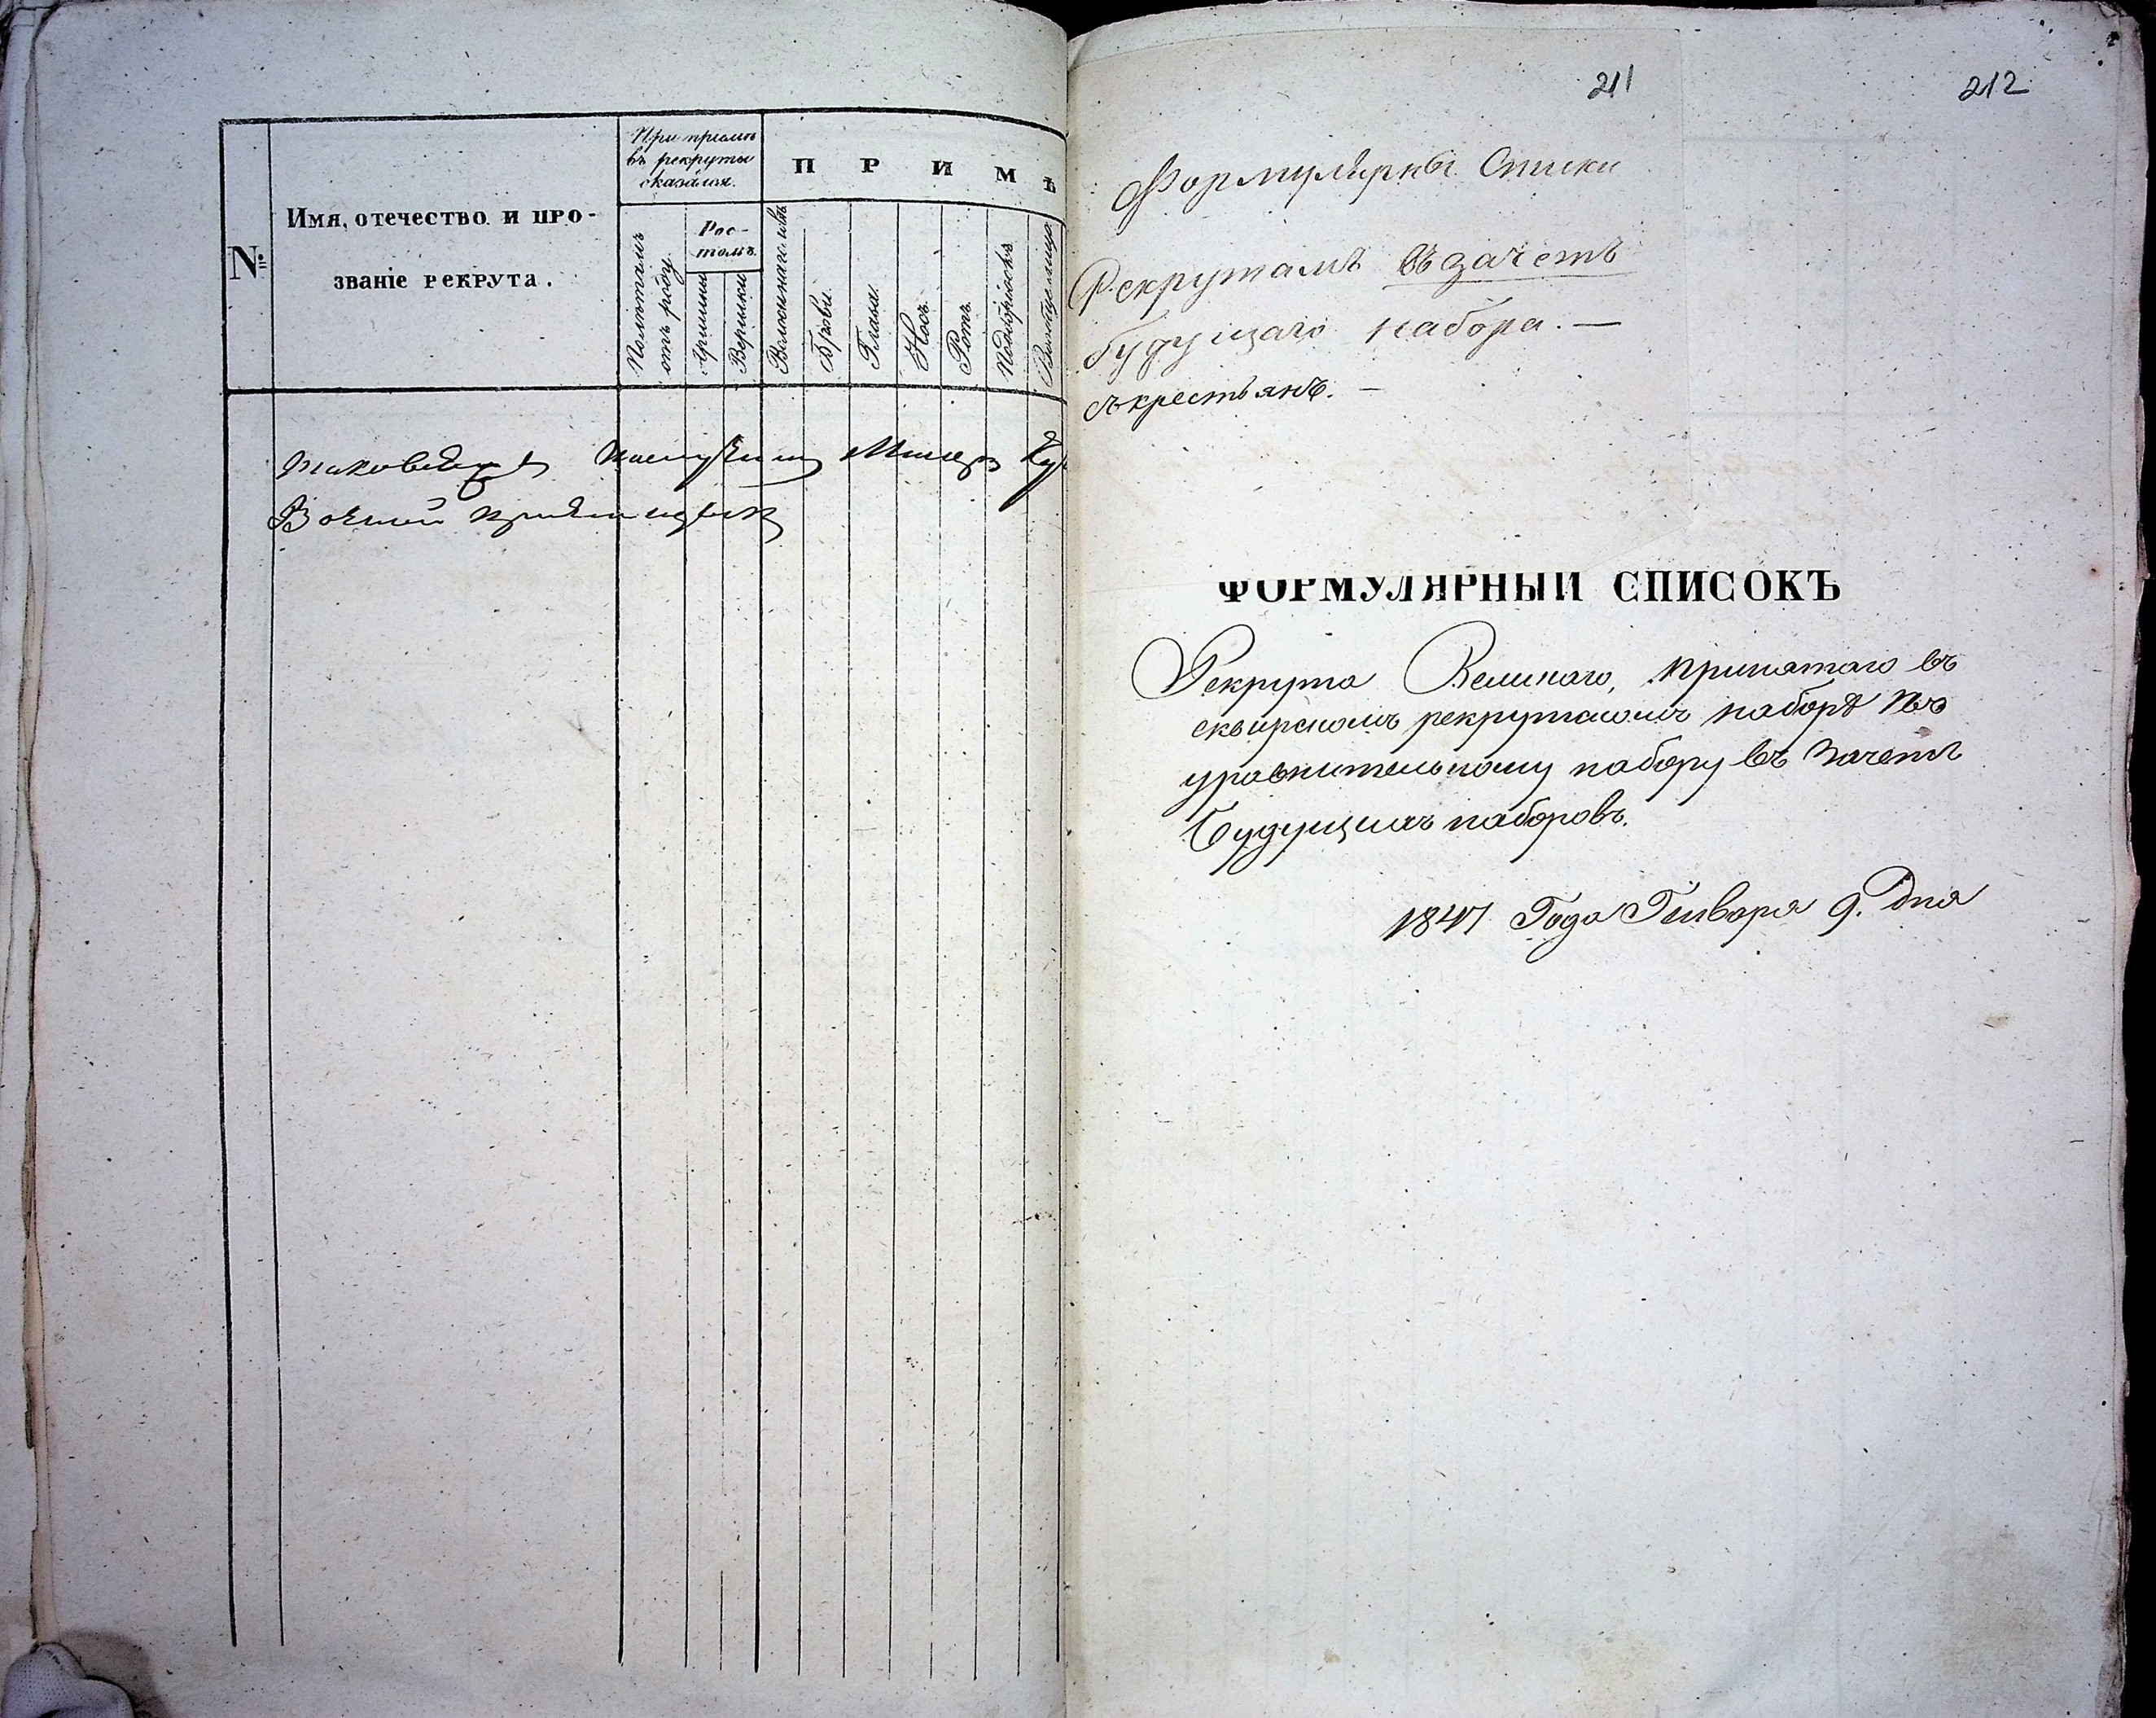 №
Имя, отечество и про-
званіе рекрута.
При пріемѣ
въ рекруты
сказался.
Полѣтамъ
отъ роду.
Рос-
томъ.
Аршины
Вершки
П Р И М Ѣ
Брови.
Глаза.
Носъ.
Ротъ.
Подбородокъ
Военный
211
Формулярны Списки
Рекрутамъ въ зачетъ
будущаго набора. —
съ крестьянъ. —
212
ФОРМУЛЯРНЫЙ СПИСОКЪ
Рекрута принятаго въ
сквирскомъ рекрутскомъ наборѣ по
уравнительному набору въ зачетъ
Будущихъ наборовъ.
Года Генваря 9. Дня